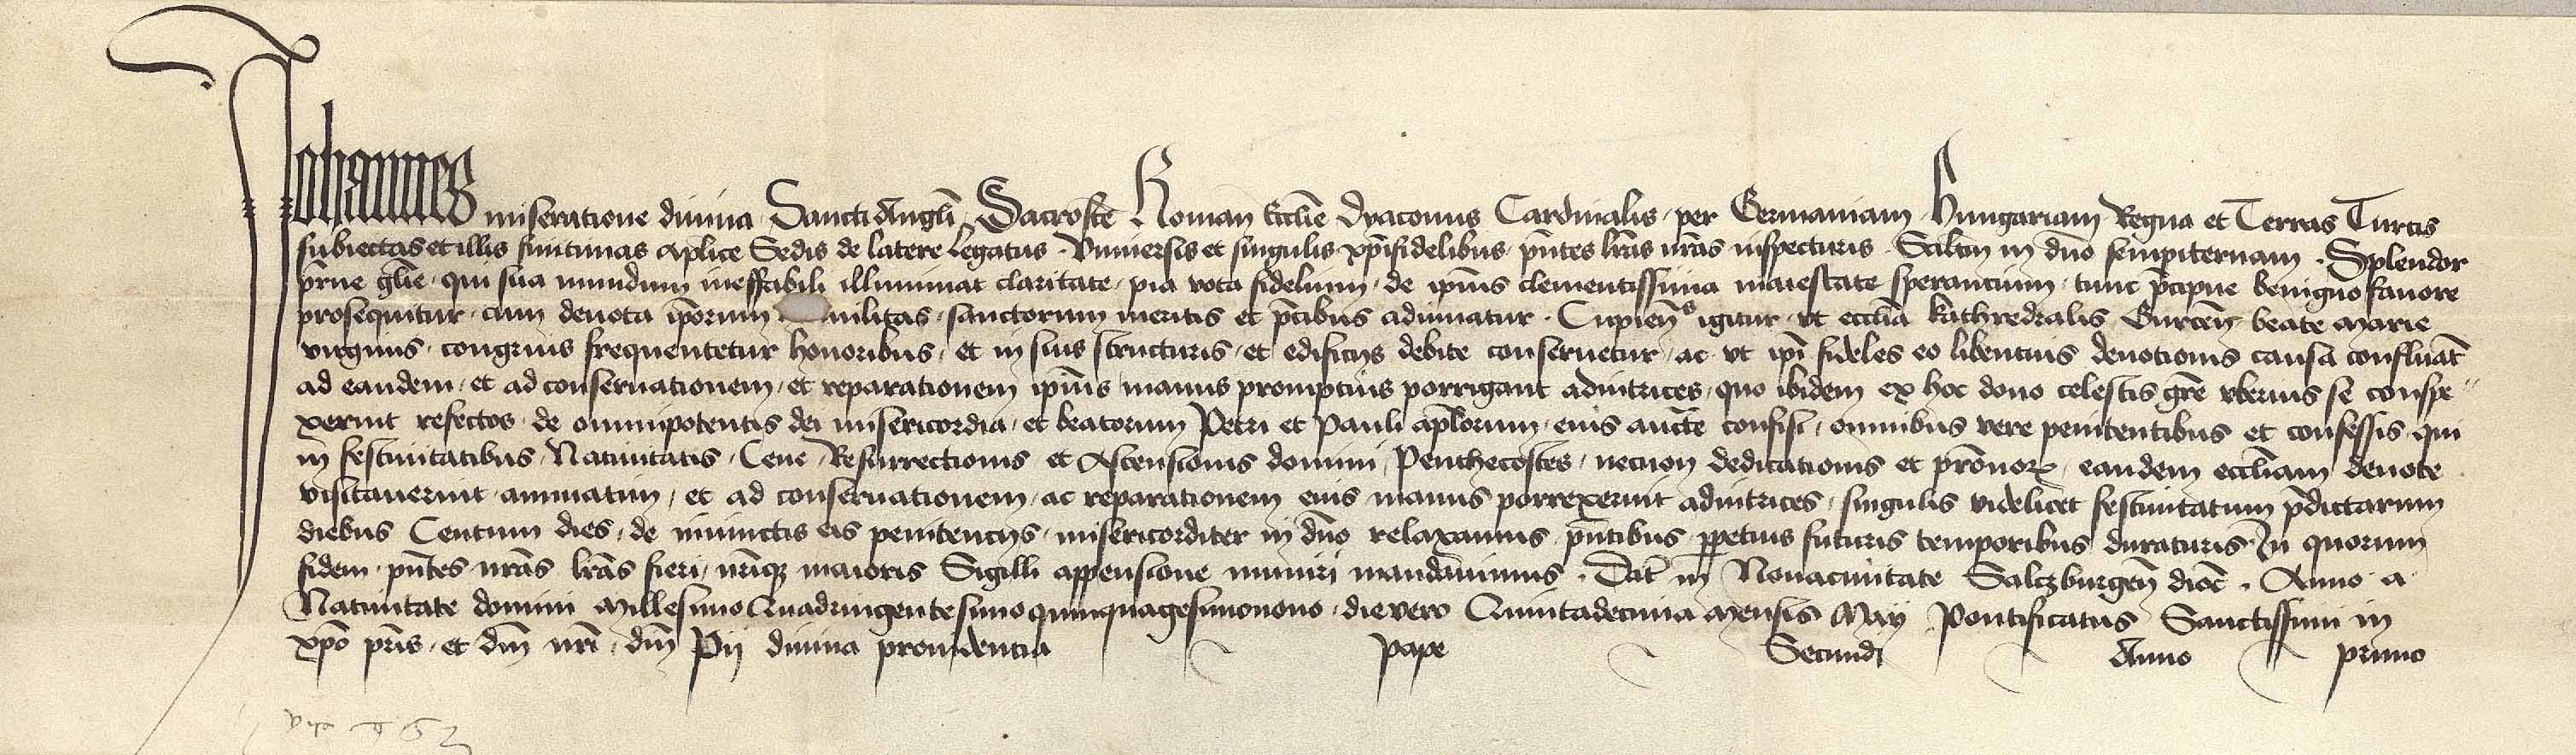 Johannes miseratione diuina Sancti Angli Sacrosc̄e Roman̄ Eccl̄ie dyaconus Cardinalis per Germaniam Hungariam Regna et Terras Turcis
subiectas et illis finitimas ap̄lice Sedis de latere Legatus. Vniuersis et singulis xp̄ifidelibus p̄ntes l̄ras n̄ras inspecturis. Salt̄m in dn̄o sempiternam. Splendor
p̄rne gl̄ie qui sua mundum ineffabili illuminat claritate pia vota fidelium de ip̄ius clementissima maiestate sperantium tunc p̄cipue benigno fauore
prosequitur cum deuota ip̄orum militas sanctorum meritis et p̄cibus adiuuatur. Cupien̄s igitur vt eccl̄ia kathredralis Gurcen̄ beate Marie
virginis congruis frequentetur honoribus et in suis structuris et edificijs debite conseruetur ac vt ip̄i fideles eo libentius deuotionis causa confluāt
ad eandem et ad conseruationem et reparationem ip̄ius manus promptius porrigant adiutrices quo ibidem ex hoc dono celestis gr̄e vberius se conspe-
xerint refectos de omnipotentis dei misericordia et beatorum Petri et Pauli ap̄lorum eius auct̄e confisi omnibus vere penitentibus et confessis qui
in festiuitatibus Natiuitatis Cene Resurrectionis et Ascensionis domini Penthecostes necnon dedicationis et pr̄onorꝝ eandem eccl̄iam deuote
visitauerint annuatim et ad conseruationem ac reparationem eius manus porrexerint adiutrices singulis videlicet festiuitatum p̄dictarum
diebus Centum dies de iniunctis eis penitencijs misericorditer in dn̄o relaxamus p̄ntibus ꝑpetuis futuris temporibus duraturis. In quorum
fidem p̄ntes n̄ras l̄ras fieri n̄rique maioris Sigilli appensione muniri mandauimus. Dat̄ in Nouaciuitate Salczburgen̄ dioc̄. Anno a
Natiuitate domini Millesimo Quadringentesimo quinquagesimonono die vero Quintadecima Mensis May Pontificatus Sanctissimi in
xp̄o pr̄is et dn̄i n̄ri dn̄i Pij diuina prouidentia pape Secundi Anno primo